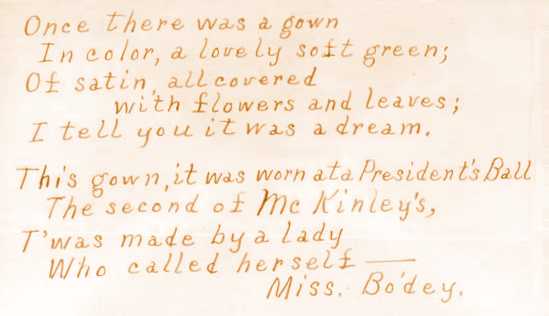 Once there was a gown
In color, a lovely soft green;
Of satin, all covered
with flowers and leaves;
I tell you it was a dream.
This gown, it was worn at a President's Ball
The second of McKinley's,
T'was made by a lady
Who called herself —
Miss. Bo'dey.